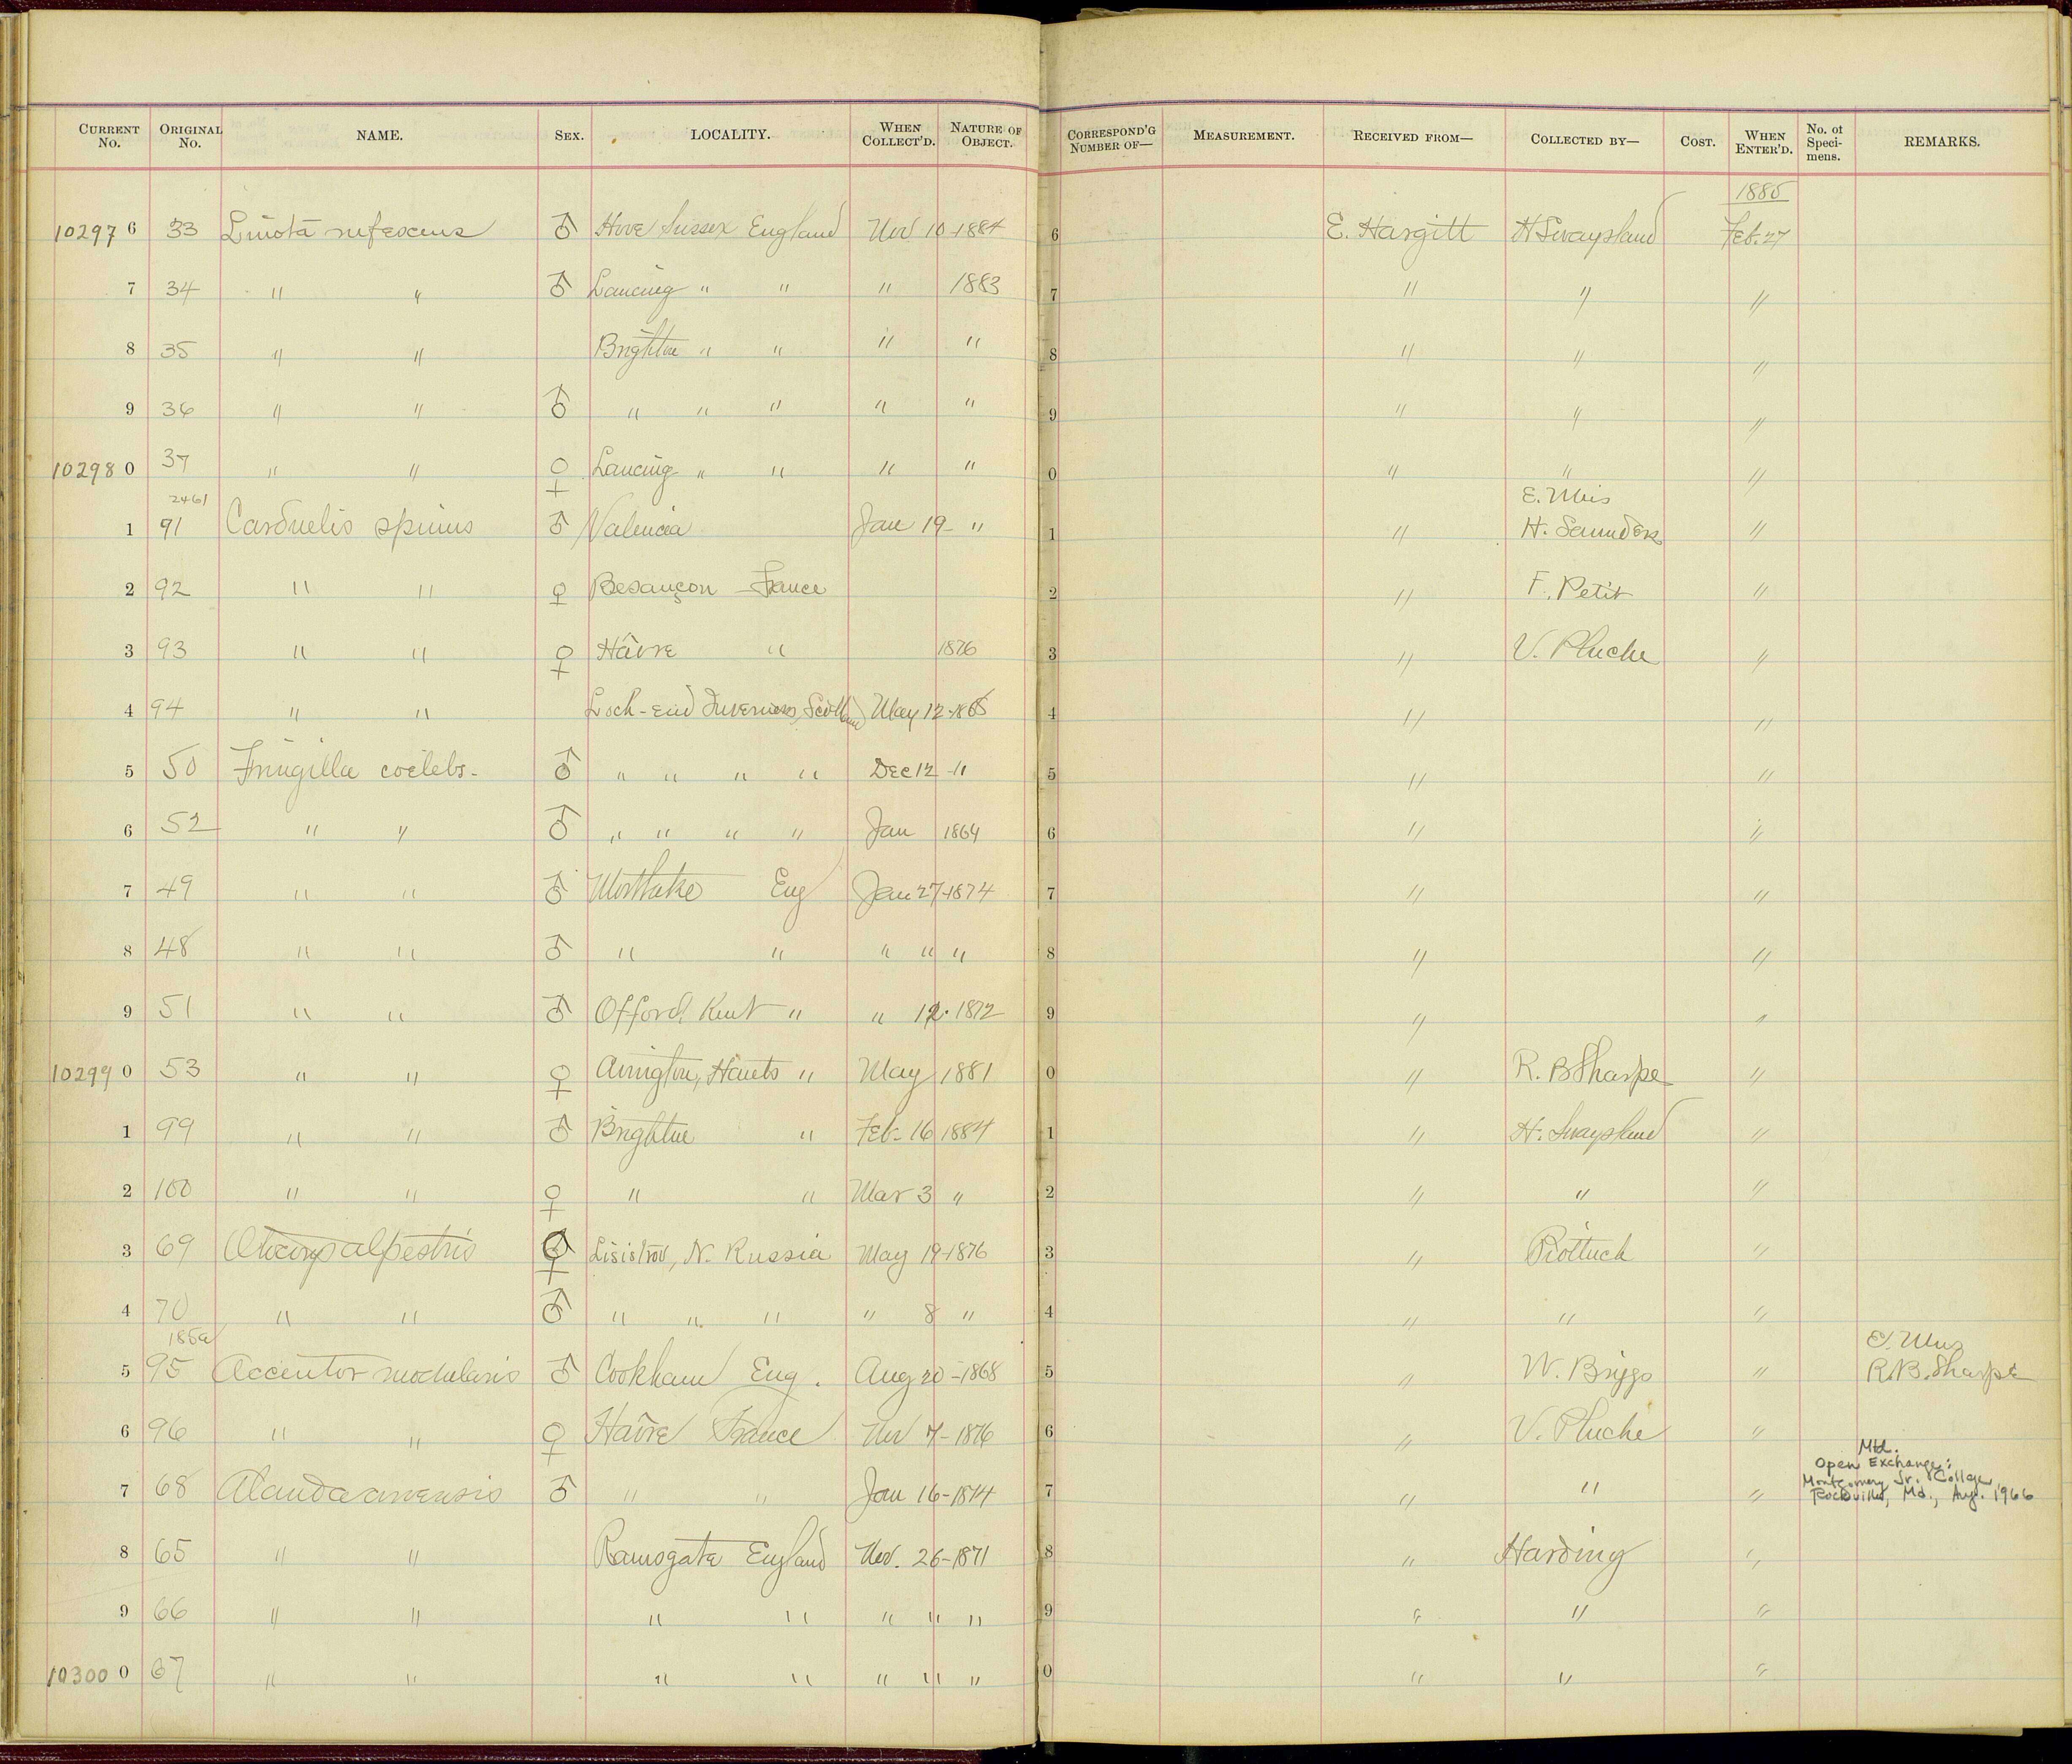 CURRENT No. ORIGINAL No. NAME. SEX. LOCALITY. WHEN COLLECT'D. NATURE OF OBJECT. CORRESPOND'G NUMBER OF— MEASUREMENT. RECEIVED FROM— COLLECTED BY— COST. WHEN ENTER'D. No. of Speci-mens. REMARKS.
1885
10297 6 33 Linota rufescens ♂ Hove Sussex England Nov 10-1884 6 E. Hargitt H Swaysland Feb. 27
7 34 " " ♂ Lancing " " " 1883 7 " " "
8 35 " " Brighton " " " " 8 " " "
9 36 " " ♂ " " " " " 9 " " "
10298 0 37 " " ♀ Lancing " " " " 0 " " "
2461 E. Mus
1 91 Carduelis spinus ♂ Valencia Jan 19- " 1 " H. Saunders "
2 92 " " ♀ Besançon France 2 " F. Petit "
3 93 " " ♀ Hâvre " 1876 3 " V. Pluche "
4 94 " " Loch-end Inverness, Scotland May 12-1865 4 " "
5 50 Fringilla coelebs. ♂ " " " " Dec 12 -" 5 " "
6 52 " " ♂ " " " " Jan 1864 6 " "
7 49 " " ♂ Mortlake Eng Jan 27-1874 7 " "
8 48 " " ♂ " " " " " 8 " "
9 51 " " ♂ Offord Kent " " 12-1872 9 " "
10299 0 53 " " ♀ Avington, Hants " May 1881 0 " R. B Sharpe "
1 99 " " ♂ Brighton " Feb- 16 1884 1 " H. Swaysland "
2 100 " " ♀ " " Mar 3 " 2 " " "
3 69 Otocorys alpestris ♀ , N. Russia May 19-1876 3 " Piottuch "
4 70 " " ♂ " " " " 8 " 4 " " "
185a E. Mus
5 95 Accentor modularis ♂ Cookham Eng. Aug 20-1868 5 " W. Briggs " R. B. Sharpe
6 96 " " ♀ Hâvre France Nov 7-1876 6 " V. Pluche "
Mtd.
Open Exchange:
Montgomery Jr. College
7 68 Alauda arvensis ♂ " " Jan 16-1874 7 " " " Rockville, Md., Aug. 1966
8 65 " " Ramsgate England Nov. 26-1871 8 " Harding "
9 66 " " " " " " " 9 " " "
10300 0 67 " " " " " " " 0 " " "